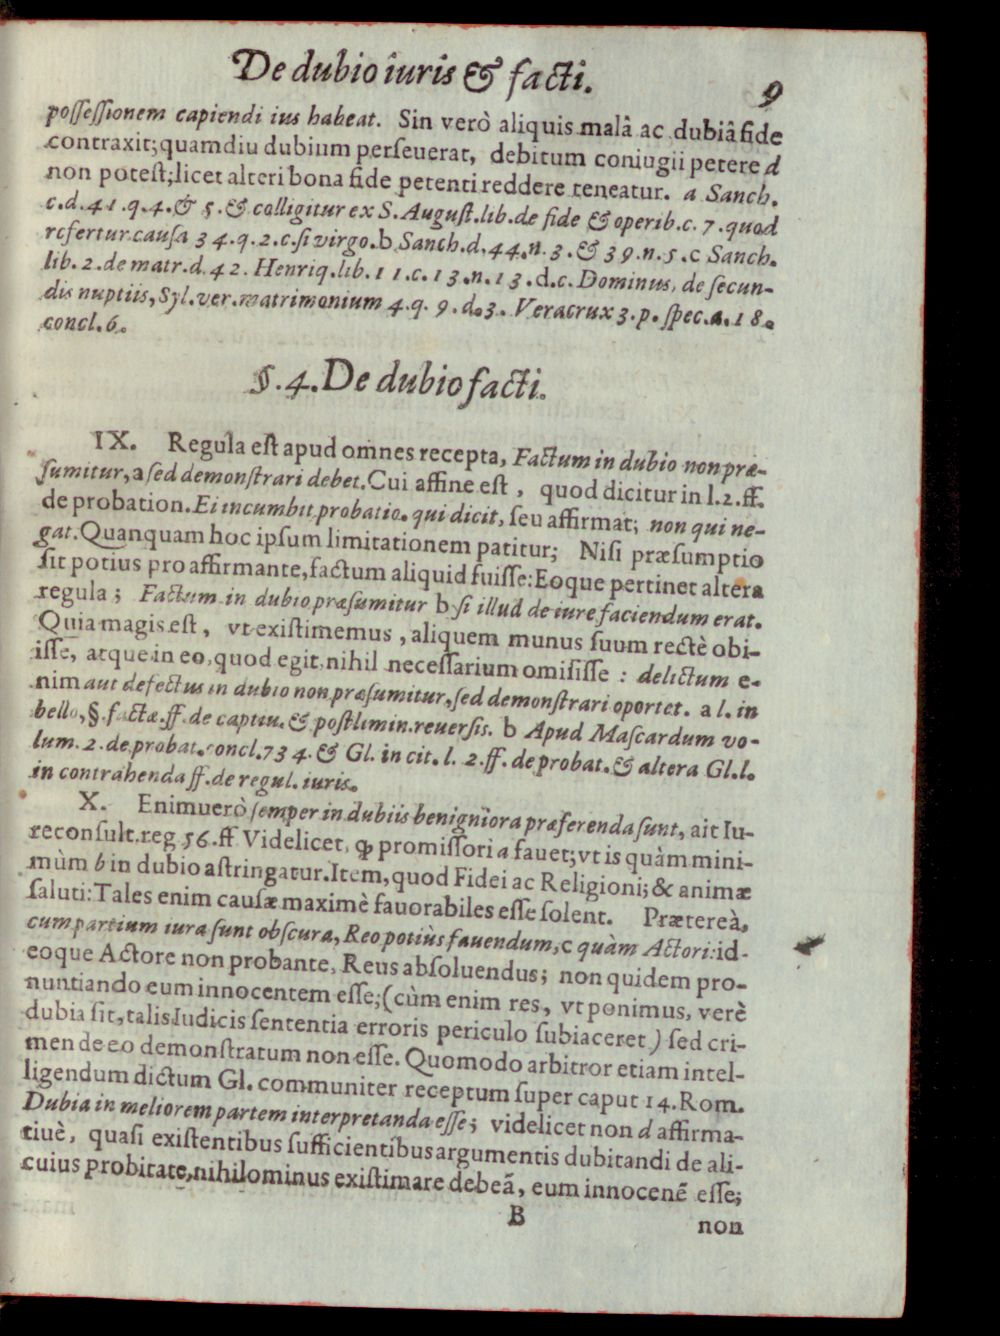 De dubio iuris & facti. 9
possessionem capiendi ius habeat. Sin verò aliquis malâ ac dubiâ fide
contraxit; quamdiu dubium perseuerat, debitum coniugii petere d
non potest; licet alteri bona fide petenti reddere teneatur. a Sanch.
c.d.41.q.4.& 5.& colligitur ex S. August.lib.de fide & operib.c.7.quod
refertur causa 34.q.2.c.si virgo. b Sanch.d.44.n.3.& 39.n.5. c Sanch.
lib.2.de matr.d.42. Henriq.lib.11.c.13.n.13. d.c. Dominus, de secun-
dis nuptiis, Syl.ver.matrimonium 4.q.9.d.3. Veracrux 3.p.spec.a.18.
concl.6.
§.4. De dubio facti.
IX. Regula est apud omnes recepta, Factum in dubio non præ-
sumitur, a sed demonstrari debet. Cui affine est, quod dicitur in l.2.ff.
de probation. Ei incumbit probatio. qui dicit, seu affirmat; non qui ne-
gat. Quanquam hoc ipsum limitationem patitur; Nisi præsumptio
sit potius pro affirmante, factum aliquid fuisse: Eoque pertinet altera
regula; Factum in dubio præsumitur b si illud de iure faciendum erat.
Quia magis est, vt existimemus, aliquem munus suum rectè obi-
isse, atque in eo, quod egit, nihil necessarium omisisse: delictum e-
nim aut defectus in dubio non præsumitur, sed demonstrari oportet. a l. in
bello, §. factæ. ff. de captiu. & postlimin. reuersis. b Apud Mascardum vo-
lum.2.de probat. concl.734. & Gl. in cit. l. 2. ff. de probat. & altera Gl. l.
in contrahenda ff. de regul. iuris.
X. Enimuerò semper in dubiis benigniora præferenda sunt, ait Iu-
reconsult. reg 56. ff Videlicet, ꝙ promissori a fauet; vt is quàm mini-
mùm b in dubio astringatur. Item, quod Fidei ac Religioni; & animæ
saluti: Tales enim causæ maximè fauorabiles esse solent. Prætereà,
cum partium iura sunt obscura, Reo potiùs fauendum, c quàm Actori: id-
eoque Actore non probante, Reus absoluendus; non quidem pro-
nuntiando eum innocentem esse; (cùm enim res, vt ponimus, verè
dubia sit, talis Iudicis sententia erroris periculo subiaceret) sed cri-
men de eo demonstratum non esse. Quomodo arbitror etiam intel-
ligendum dictum Gl. communiter receptum super caput 14. Rom.
Dubia in meliorem partem interpretanda esse; videlicet non d affirma-
tiuè, quasi existentibus sufficientibus argumentis dubitandi de ali-
cuius probitate, nihilominus existimare debeã, eum innocenẽ esse;
B non